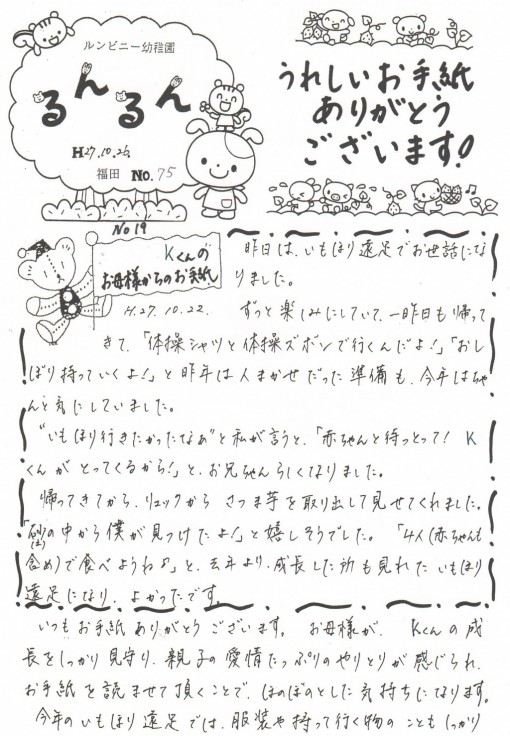 ルンビニー幼稚園
るんるん
H27.10.26.
福田 No.75
うれしいお手紙
ありがとう
ございます!
No19
Kくんの
お母様からのお手紙
H.27.10.22.
昨日は、いもほり遠足でお世話にな
りました。
ずっと楽しみにしていて、一昨日も帰って
きて、「体操シャツと体操ズボンで行くんだよ!」「おし
ぼり持っていくよ!」と昨年は人まかせだった準備も、今年はちゃ
んと気にしていました。
"いもほり行きたかったなぁ"と私が言うと、「赤ちゃんと待っとって! K
くんがとってくるから!」と、お兄ちゃんらしくなりました。
帰ってきてから、リュックからさつま芋を取り出して見せてくれました。
「砂(土)の中から僕が見つけたよ!」と嬉しそうでした。「4人(赤ちゃんも
含め)で食べようね♪」と、去年より、成長した所も見れたいもほり
遠足になり、よかったです。
いつもお手紙ありがとうございます。お母様が、Kくんの成
長をしっかり見守り、親子の愛情たっぷりのやりとりが感じられ、
お手紙を読ませて頂くことで、ほのぼのとした気持ちになります。
今年のいもほり遠足では、服装や持って行く物のこともしっかり